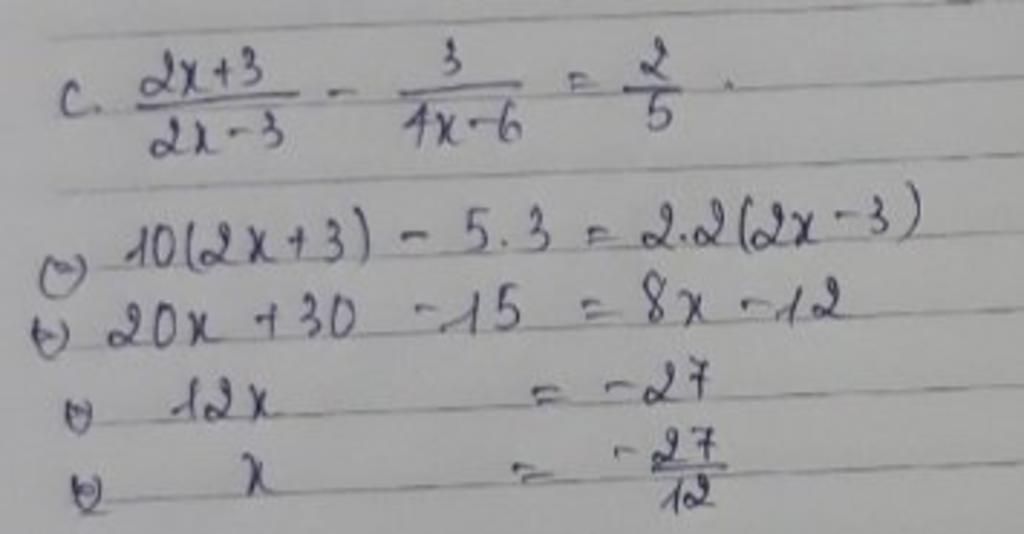 c. \frac{2x+3}{2x-3} - \frac{3}{4x-6} = \frac{2}{5}.
⇔ 10(2x+3) - 5.3 = 2.2(2x-3)
⇔ 20x +30 -15 = 8x -12
⇔ 12x = -27
⇔ x = -\frac{27}{12}